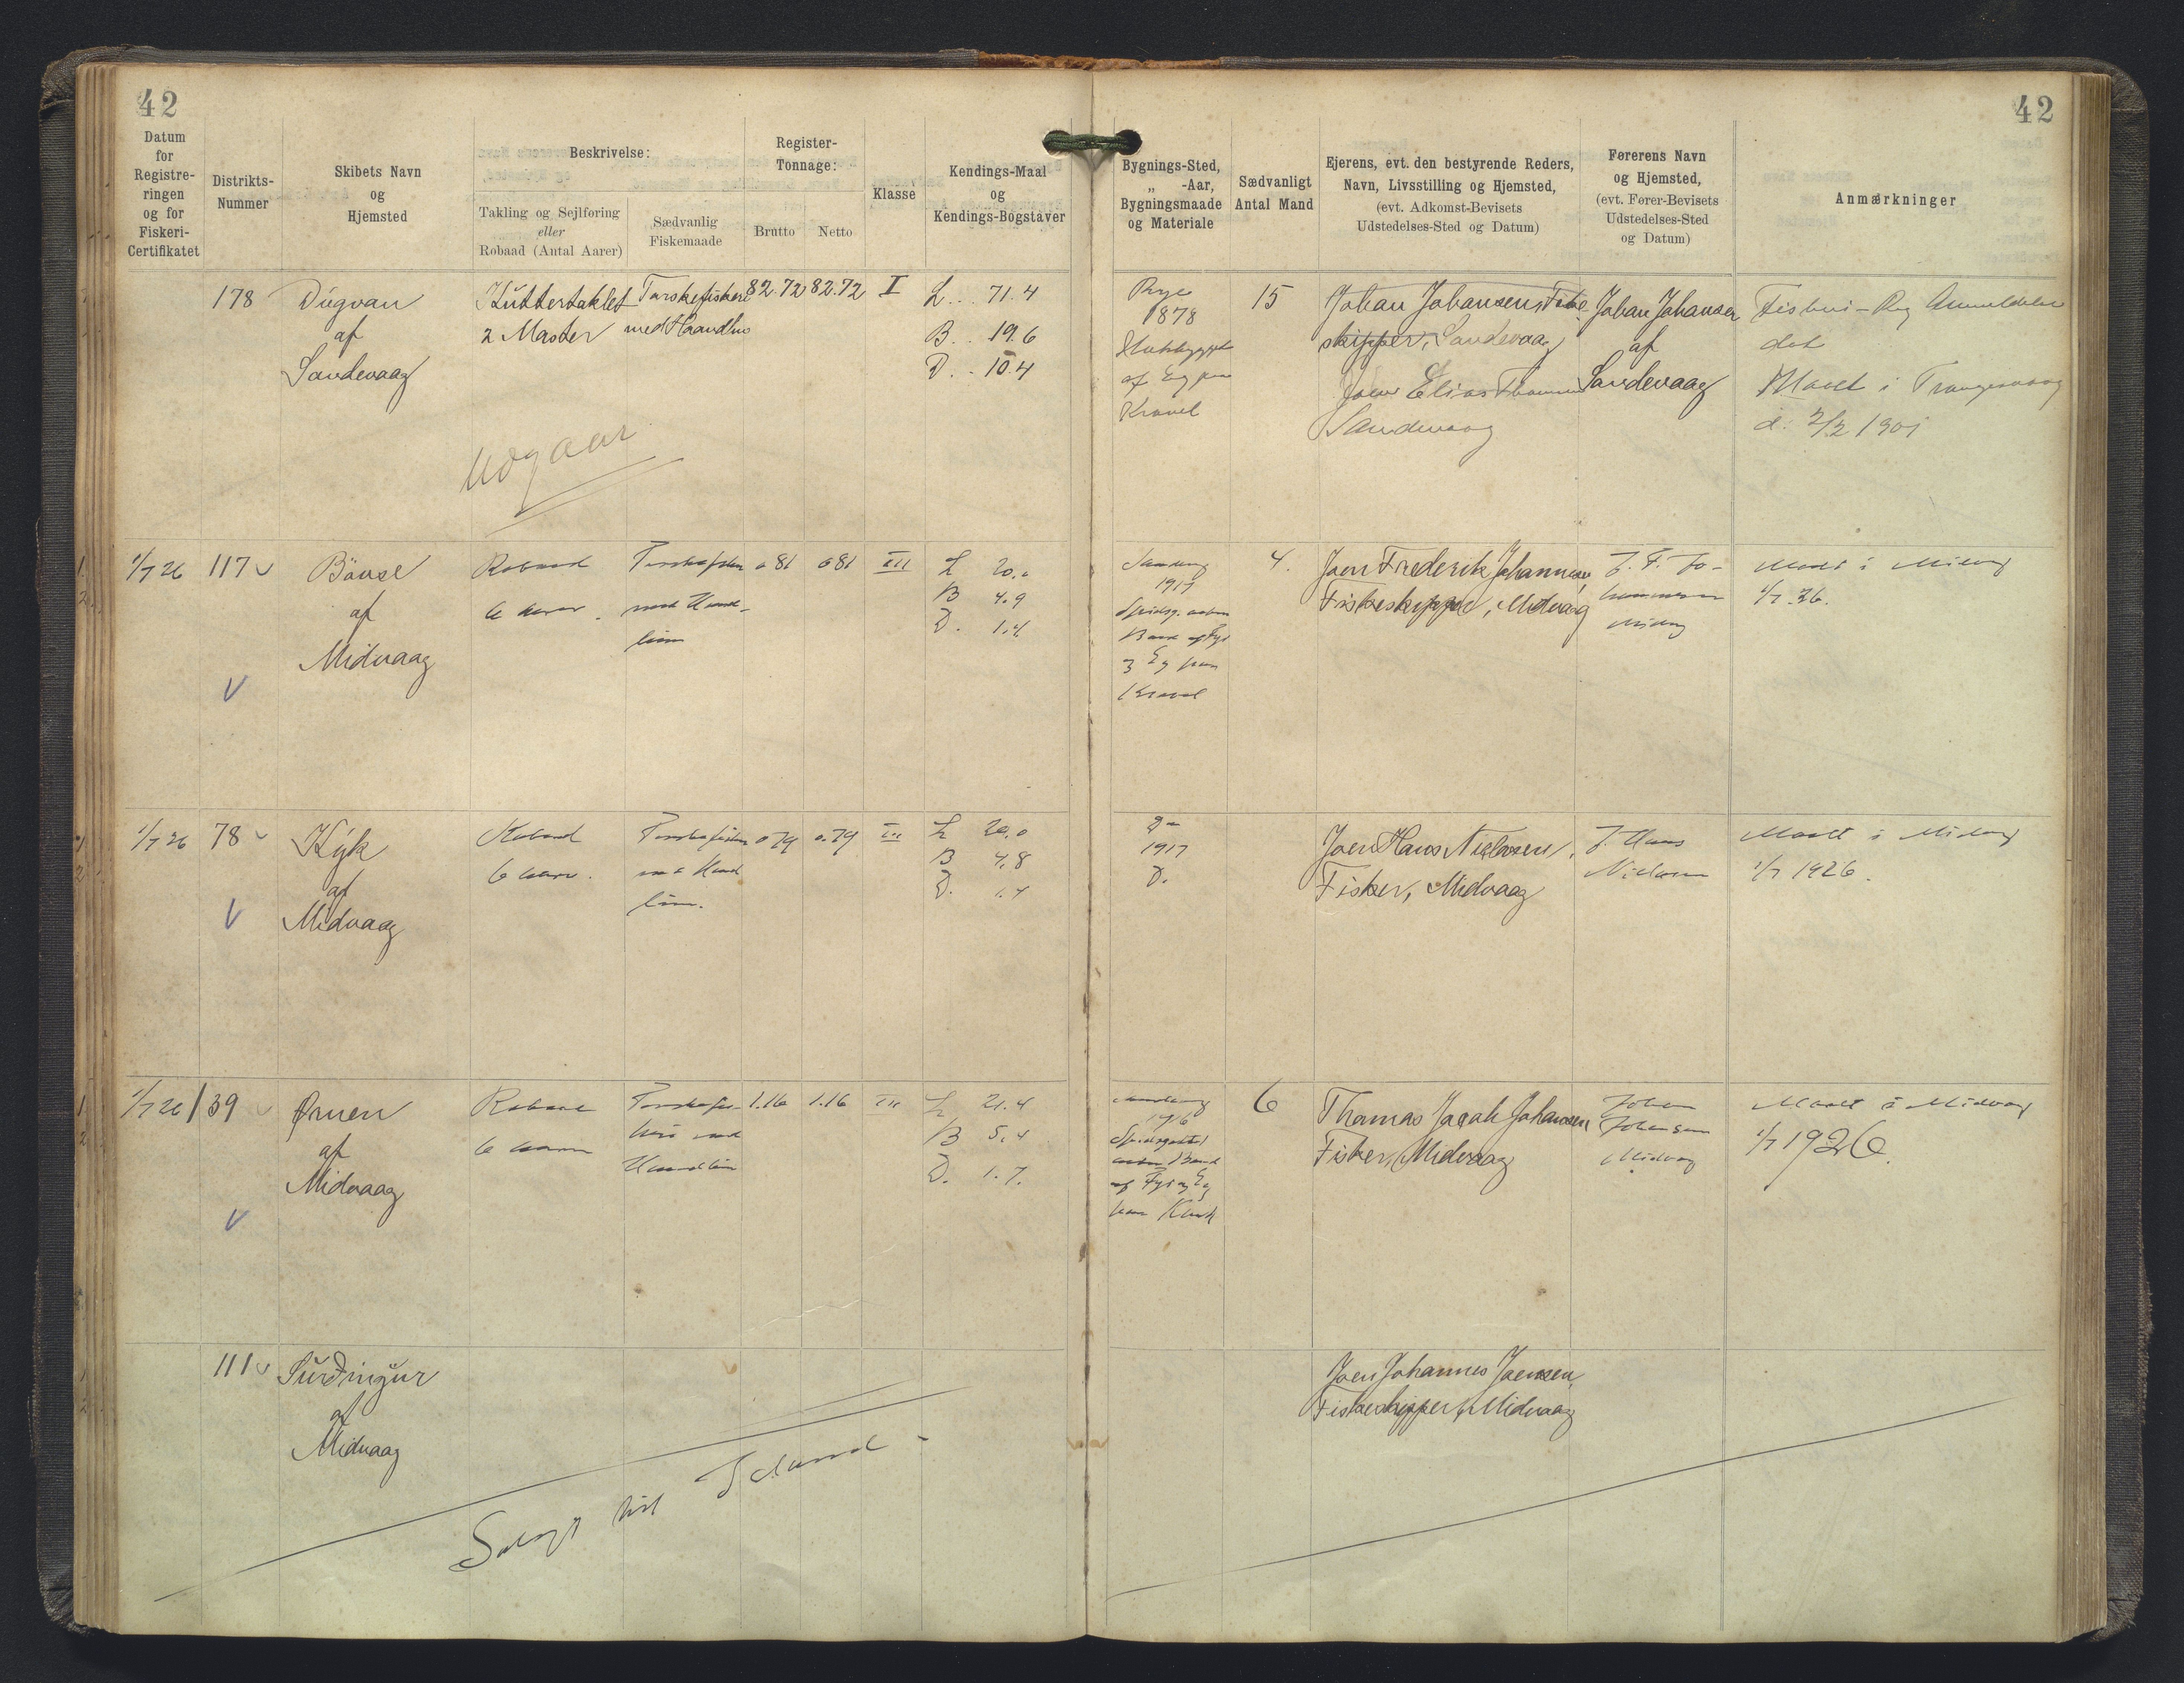 42
Datum
for
Registre-
ringen
og for
Fiskeri-
Certifikatet
Distrikts-
Nummer
Skibets Navn
og
Hjemsted
Beskrivelse:
Takling og Sejlføring
eller
Robaad (Antal Aarer)
Sædvanlig
Fiskemaade
Register-
Tonnage:
Brutto
Netto
Klasse
Kendings-Maal
og
Kendings-Bogstaver
42
Bygnings-Sted,
„ -Aar,
Bygningsmaade
og Materiale
Sædvanligt
Antal Mand
Ejerens, evt. den bestyrende Reders,
Navn, Livsstilling og Hjemsted,
(evt. Adkomst-Bevisets
Udstedelses-Sted og Datum)
Førerens Navn
og Hjemsted,
(evt. Fører-Bevisets
Udstedelses-Sted
og Datum)
Anmærkninger
178
Dúgvan
af
Sandevaag
Kuttertaklet
2 Master
Torskefiskeri
med Haandline
82.72
82.72
I
L. . 71.4
B. . 19.6
D. . 10.4
Rye
1878
af Eg paa
Kravel
15
Johan Johansen, Fiske
skipper, Sandevaag
Joen Elias Thomsen
Sandevaag
Johan Johansen
af
Sandevaag
Fiskeri-Reg Anmeldelse
dat
Maalt i Trangisvaag
d. 2/2 1901
Udgaar
1/7 26
117
af
Midvaag
Robaad
6 Aarer.
Torskefiskeri
med Haand-
line
0 81
0 81
III
L 20.0
B 4.9
D. 1.4
1917
Spidsg. aaben
Baad af Fyr
og Eg paa
Kravel
4.
Joen Frederik Johannesen
Fiskeskipper, Midvaag
J. F. Jo-
hannesen
Midvaag
Maalt i Midvaag
1/7 26.
1/7 26
78
Kýk
af
Midvaag
Robaad
6 Aarer.
Torskefiskeri
med Haand
line.
0 79
0.79
III
L 20.0
B 4.8
D. 1.4
Do
1917
D.
Joen Hans Nielsen,
Fisker, Midvaag
J. Hans
Nielsen
Maalt i Midvaag
1/7 1926.
1/7 26
139
Ørnen
af
Midvaag
Robaad
6 Aarer
Torskefis-
keri med
Haandline
1.16
1.16
III
L 21.4
B 5.4
D. 1.7.
1916
Spidsgattet
aaben Baad
af Fyr og Eg
paa Kravel
6
Thomas Jacob Johansen
Fisker, Midvaag
Johan
Johansen
Midvaag
Maalt i Midvaag
1/7 1926.
111
Surðingur
af
Midvaag
Joen Johannes Joensen,
Fiskeskipper, Midvaag
Solgt til Island